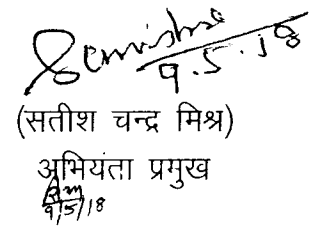 9.5.18
(सतीश चन्द्र मिश्र)
अभियंता प्रमुख
9/5/18